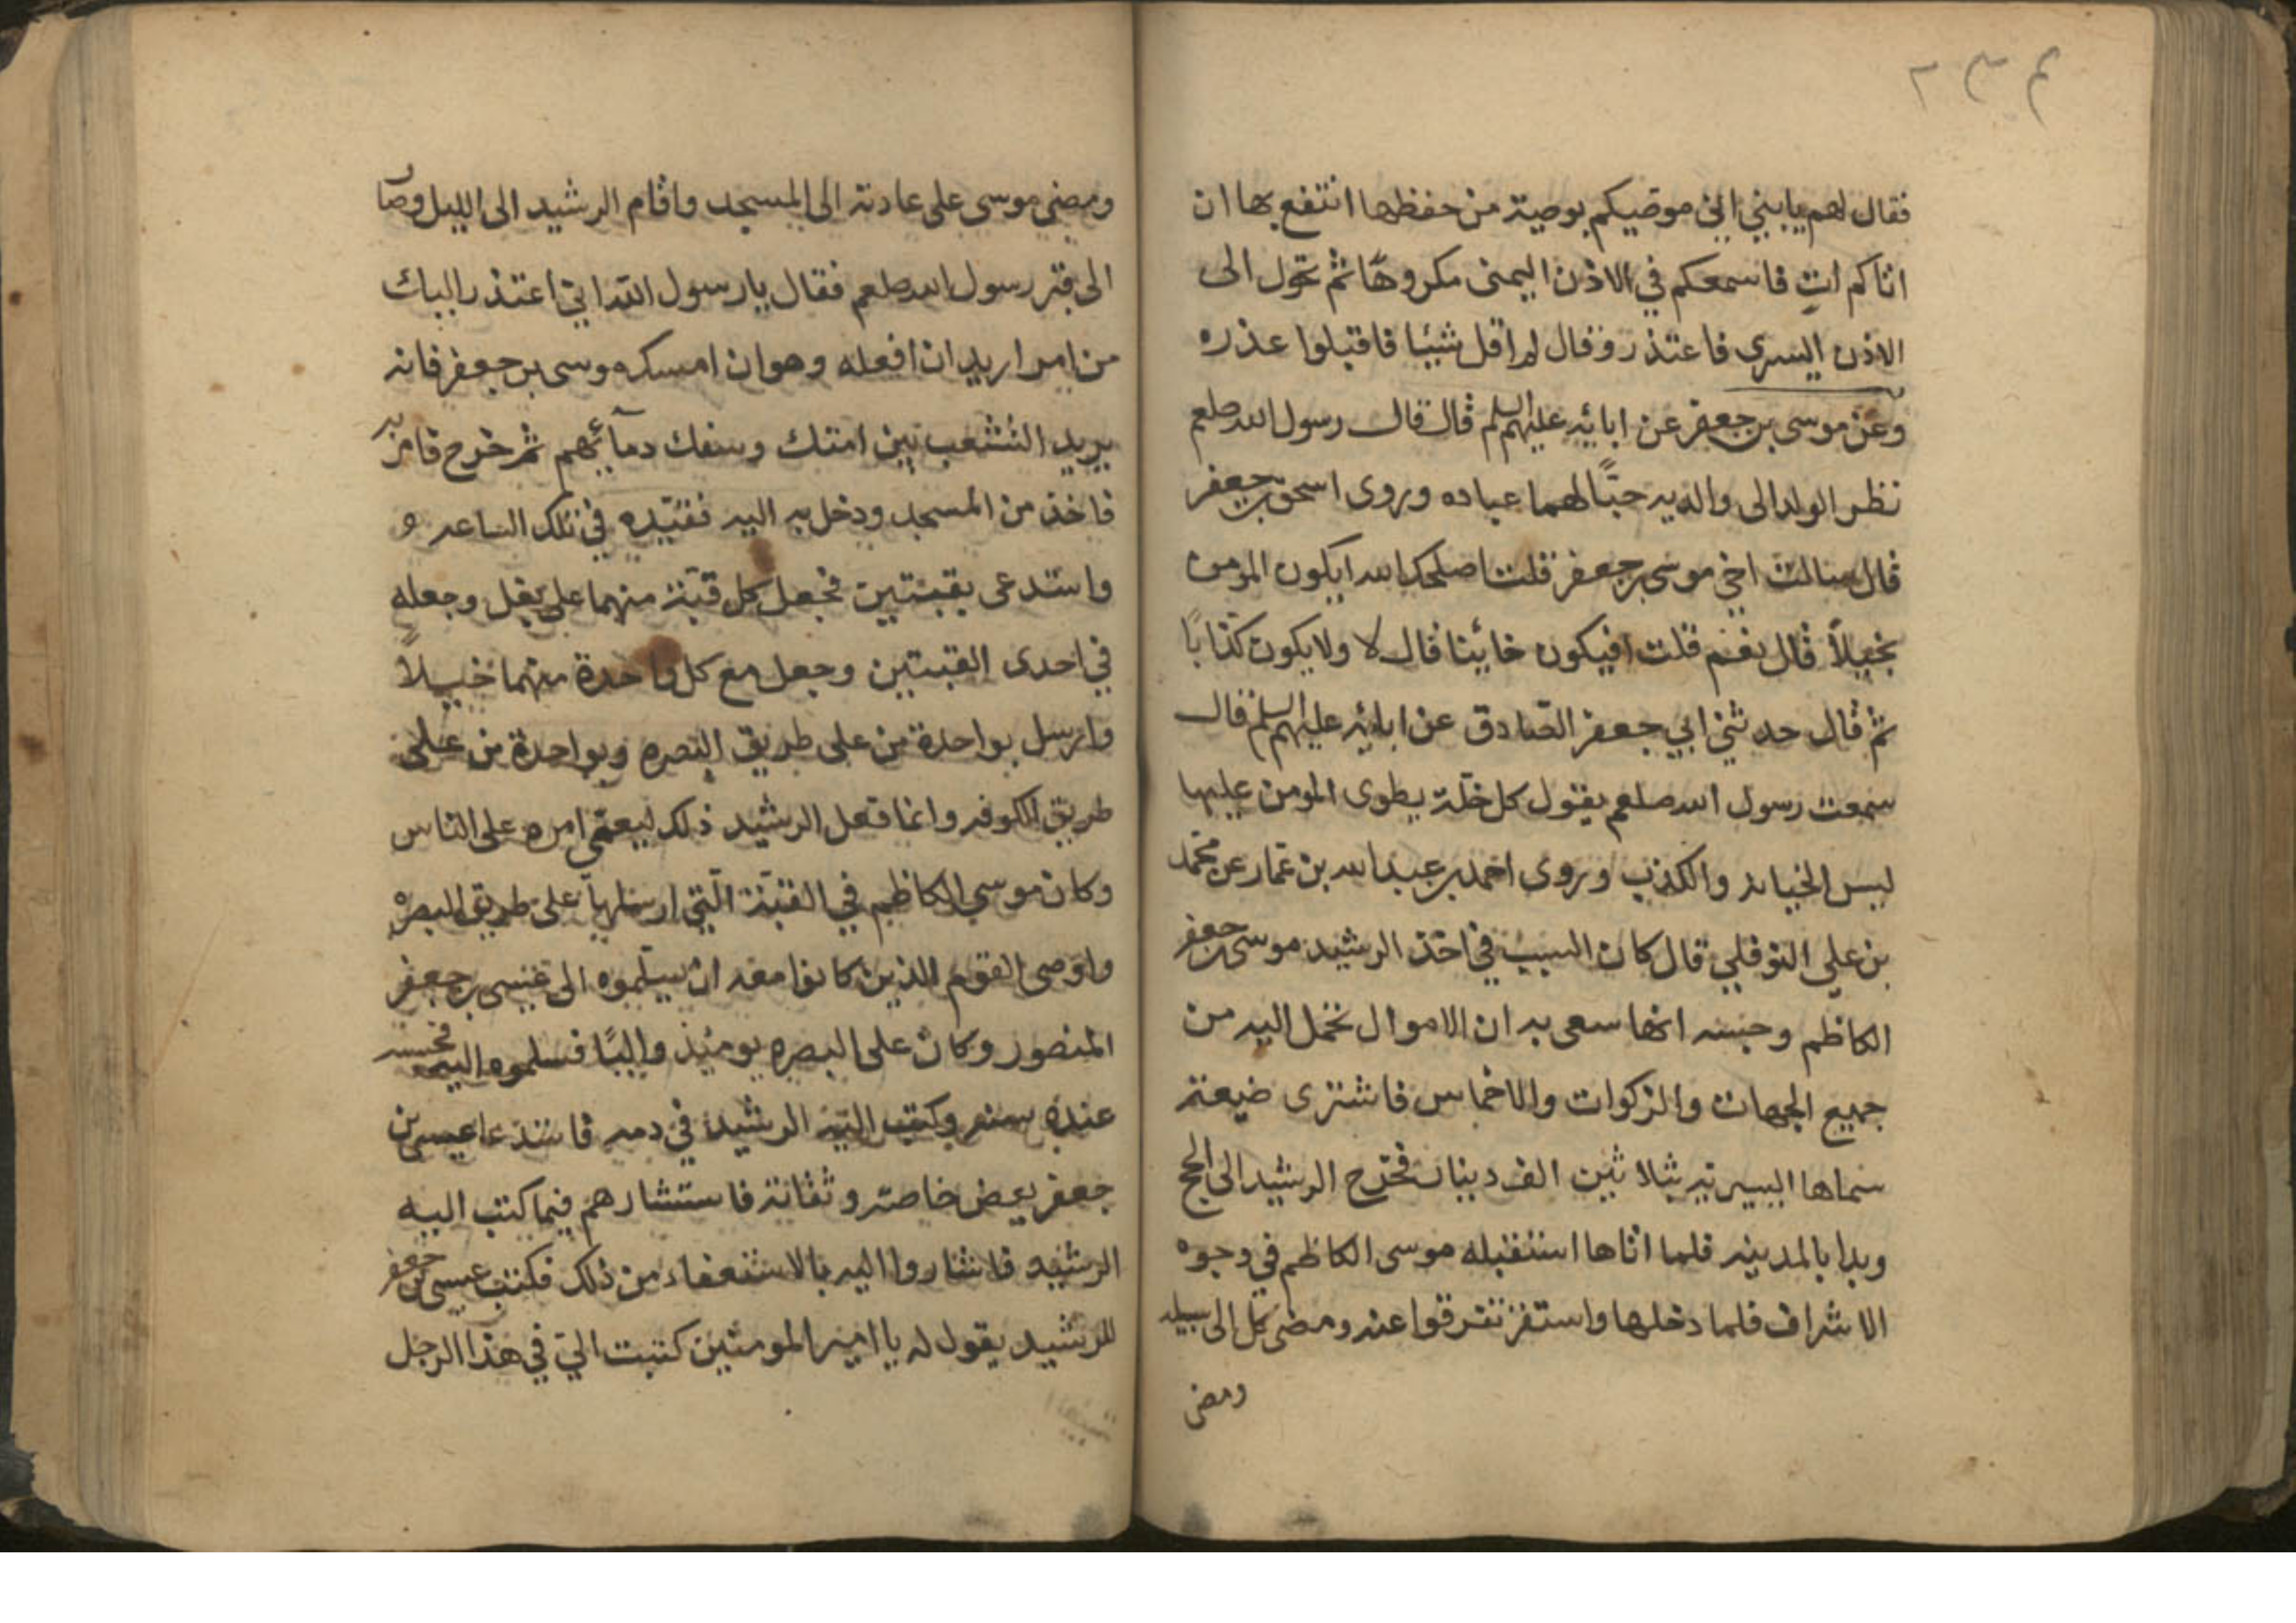 ٢٣٤
فقال لهم يا بني اني موصيكم بوصية من حفظها انتفع بها ان
اتاكم اتٍ فاسمعكم في الاذن اليمنى مكروهًا ثم تحول الى
الاذن اليسرى فاعتذر وقال لم اقل شيئا فاقبلوا عذره
وعن موسى بن جعفر عن ابائه عليهم السلم قال قال رسول الله صلعم
نظر الولد الى والديه حبًّا لهما عباده وروى اسحق بن جعفر
قال سالت اخي موسى بن جعفر قلت اصلحك الله ايكون المومن
بخيلاً قال نعم قلت افيكون خائينا قال لا ولا يكون كذابًا
ثم قال حدثني ابي جعفر الصادق عن ابائه عليهم السلم قال
سمعت رسول الله صلعم يقول كل خلة يطوى المومن عليها
ليس الخيانه والكذب وروى احمد بن عبد الله بن عمار عن محمد
بن علي النوفلي قال كان السبب في اخذ الرشيد موسى بن جعفر
الكاظم وحبسه انها سعى به ان الاموال تحمل اليه من
جميع الجهات والزكوات والاخماس فاشترى ضيعة
سماها اليسيريه بثلاثين الف دينار فخرج الرشيد الى الحج
وبدا بالمدينه فلما اتاها استقبله موسى الكاظم في وجوه
الاشراف فلما دخلها واستقر تفرقوا عنه ومضى كل الى سبيله
ومضى
ومضى موسى على عادته الى المسجد واقام الرشيد الى الليل وصار
الى قبر رسول الله صلعم فقال يا رسول الله اني اعتذر اليك
من امر اريد ان افعله وهو ان امسك موسى بن جعفر فانه
يريد التشعب بين امتك وسفك دمآئهم ثم خرج فامر به
فاخذ من المسجد ودخل به اليه فقيّده في تلك الساعه و
واستدعى بقبتين فجعل كل قبّة منهما على بغل وجعله
في احدى القبتين وجعل مع كل واحدة منهما خيلاً
وارسل بواحدة من على طريق البصره وبواحدة من على
طريق الكوفه وانما فعل الرشيد ذلك ليعمّي امره على الناس
وكان موسى الكاظم في القبّة الّتي ارسلها على طريق البصره
واوصى القوم الذين كانوا معه ان يسلّموه الى عيسى بن جعفر
المنصور وكان على البصره يومئذ واليًا فسلموه اليه فحبسه
عنده سنه وكتب اليه الرشيد في دمه فاستدعا عيسى بن
جعفر بعض خاصته وثقاته فاستشارهم فيما كتب اليه
الرشيد فاشاروا اليه بالاستعفاء من ذلك فكتب عيسى بن جعفر
للرشيد يقول له يا امير المومنين كتبت اليّ في هذا الرجل